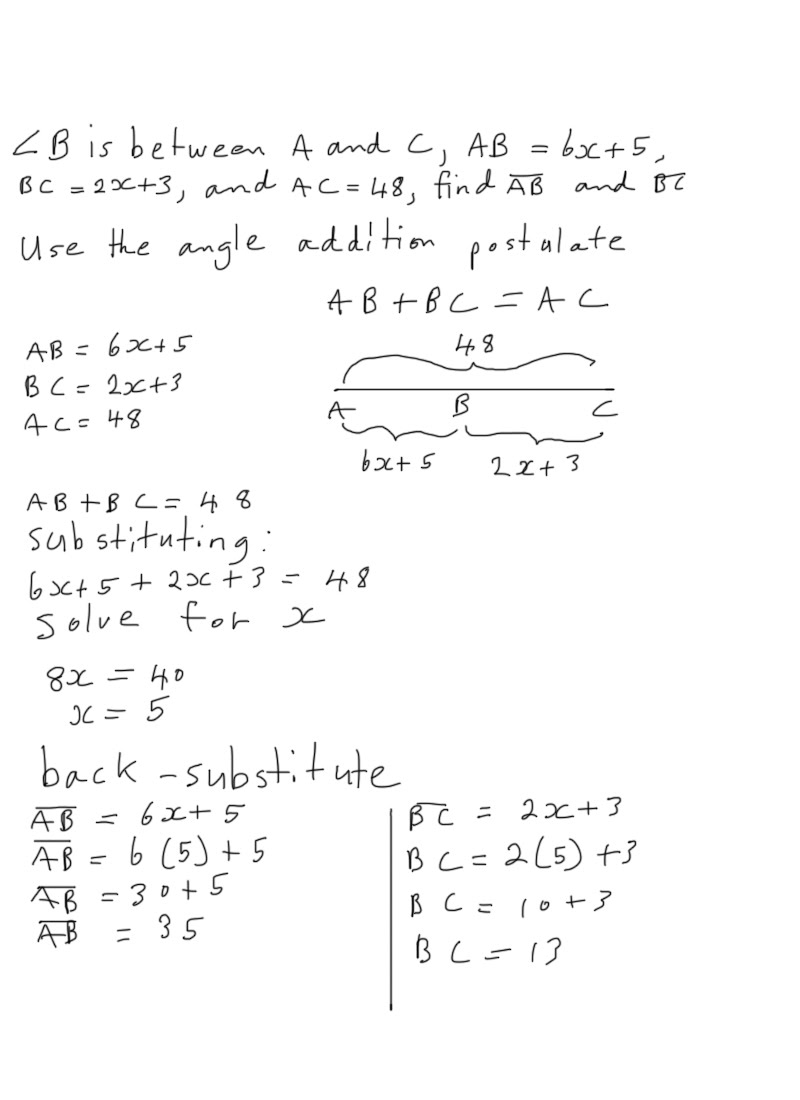 ∠B is between A and C, AB = 6x+5,
BC = 2x+3, and AC = 48, find A̅B̅ and B̅C̅
Use the angle addition postulate
AB + BC = AC
AB = 6x+5
BC = 2x+3
AC = 48
48
A B C
6x+5 2x+3
AB + BC = 48
Substituting:
6x+5 + 2x+3 = 48
Solve for x
8x = 40
x = 5
back-substitute
A̅B̅ = 6x+5
A̅B̅ = 6(5)+5
A̅B̅ = 30+5
A̅B̅ = 35
B̅C̅ = 2x+3
BC = 2(5)+3
BC = 10+3
BC = 13